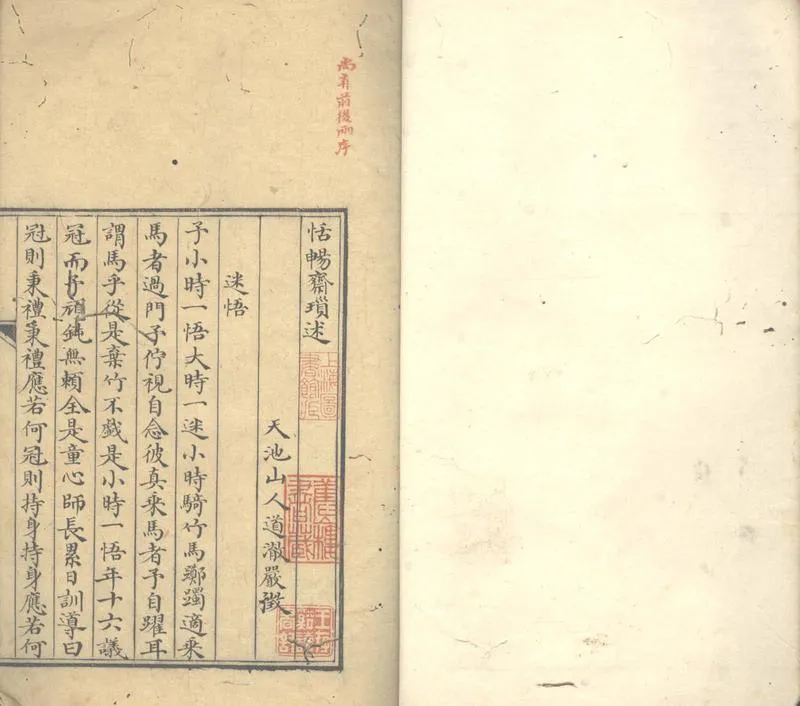 尚有前後兩序
恬暢齋瑣述
天池山人道澈嚴澂
迷悟
予小時一悟大時一迷小時騎竹馬躑躅適乘
馬者過門予佇視自念彼真乘馬者予自躍耳
謂馬乎從是棄竹不戲是小時一悟年十六議
冠而予頑鈍無賴全是童心師長累日訓導曰
冠則秉禮秉禮應若何冠則持身持身應若何
上海圖書館藏